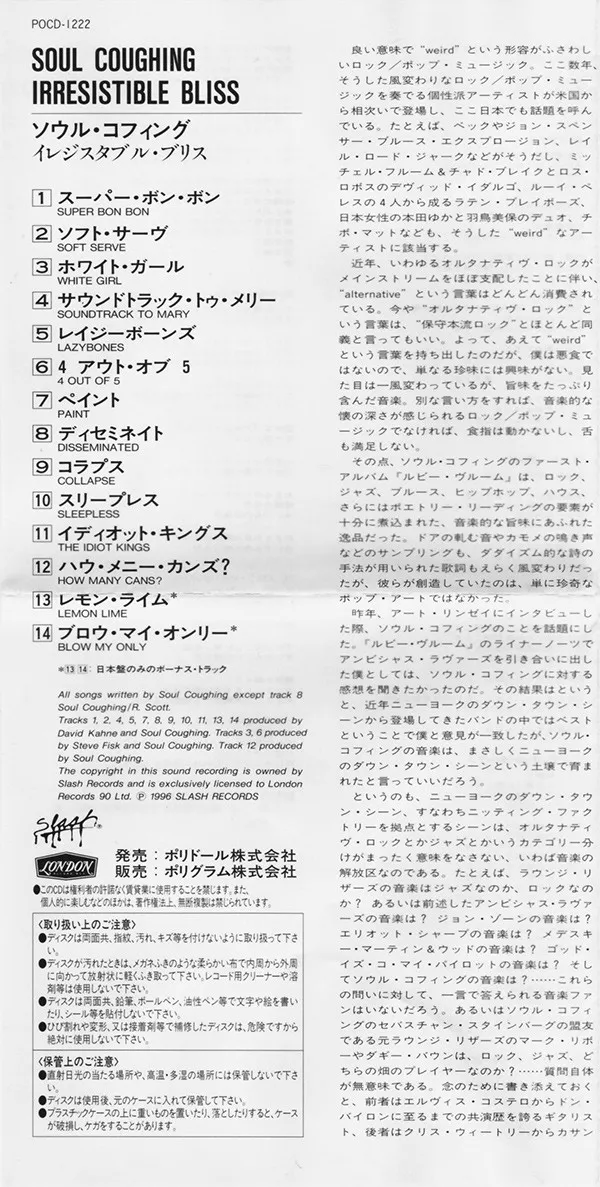 POCD-1222
SOUL COUGHING
IRRESISTIBLE BLISS
ソウル・コフィング
イレジスタブル・ブリス
1 スーパー・ボン・ボン
SUPER BON BON
2 ソフト・サーヴ
SOFT SERVE
3 ホワイト・ガール
WHITE GIRL
4 サウンドトラック・トゥ・メリー
SOUNDTRACK TO MARY
5 レイジーボーンズ
LAZYBONES
6 4 アウト・オブ 5
4 OUT OF 5
7 ペイント
PAINT
8 ディセミネイト
DISSEMINATED
9 コラプス
COLLAPSE
10 スリープレス
SLEEPLESS
11 イディオット・キングス
THE IDIOT KINGS
12 ハウ・メニー・カンズ?
HOW MANY CANS?
13 レモン・ライム*
LEMON LIME
14 ブロウ・マイ・オンリー*
BLOW MY ONLY
*13 14: 日本盤のみのボーナス・トラック
All songs written by Soul Coughing except track 8
Soul Coughing/R. Scott.
Tracks 1, 2, 4, 5, 7, 8, 9, 10, 11, 13, 14 produced by
David Kahne and Soul Coughing. Tracks 3, 6 produced
by Steve Fisk and Soul Coughing. Track 12 produced
by Soul Coughing.
The copyright in this sound recording is owned by
Slash Records and is exclusively licensed to London
Records 90 Ltd. Ⓟ 1996 SLASH RECORDS
slash®
LONDON
発売：ポリドール株式会社
販売：ポリグラム株式会社
●このCDは権利者の許諾なく賃貸業に使用することを禁じます。また、
個人的に楽しむなどのほかは、著作権法上、無断複製は禁じられています。
〈取り扱い上のご注意〉
●ディスクは両面共、指紋、汚れ、キズ等を付けないように取り扱って下さ
い。
●ディスクが汚れたときは、メガネふきのような柔らかい布で内周から外周
に向かって放射状に軽くふき取って下さい。レコード用クリーナーや溶
剤等は使用しないで下さい。
●ディスクは両面共、鉛筆、ボールペン、油性ペン等で文字や絵を書い
たり、シール等を貼付しないで下さい。
●ひび割れや変形、又は接着剤等で補修したディスクは、危険ですから
絶対に使用しないで下さい。
〈保管上のご注意〉
●直射日光の当たる場所や、高温・多湿の場所には保管しないで下さ
い。
●ディスクは使用後、元のケースに入れて保管して下さい。
●プラスチックケースの上に重いものを置いたり、落としたりすると、ケース
が破損し、ケガをすることがあります。
良い意味で"weird"という形容がふさわし
いロック／ポップ・ミュージック。ここ数年、
そうした風変わりなロック／ポップ・ミュー
ジックを奏でる個性派アーティストが米国か
ら相次いで登場し、ここ日本でも話題を呼ん
でいる。たとえば、ベックやジョン・スペン
サー・ブルース・エクスプロージョン、レイ
ル・ロード・ジャークなどがそうだし、ミッ
チェル・フルーム＆チャド・ブレイクとロス・
ロボスのデヴィッド・イダルゴ、ルーイ・ペ
レスの４人から成るラテン・プレイボーズ、
日本女性の本田ゆかと羽鳥美保のデュオ、チ
ボ・マットなども、そうした"weird"なアー
ティストに該当する。
近年、いわゆるオルタナティヴ・ロックが
メインストリームをほぼ支配したことに伴い、
"alternative"という言葉はどんどん消費され
ている。今や"オルタナティヴ・ロック"と
いう言葉は、"保守本流ロック"とほとんど同
義と言ってもいい。よって、あえて"weird"
という言葉を持ち出したのだが、僕は悪食で
はないので、単なる珍味には興味がない。見
た目は一風変わっているが、旨味をたっぷり
含んだ音楽。別な言い方をすれば、音楽的な
懐の深さが感じられるロック／ポップ・ミュ
ージックでなければ、食指は動かないし、舌
も満足しない。
その点、ソウル・コフィングのファースト・
アルバム『ルビー・ヴルーム』は、ロック、
ジャズ、ブルース、ヒップホップ、ハウス、
さらにはポエトリー・リーディングの要素が
十分に煮込まれた、音楽的な旨味にあふれた
逸品だった。ドアの軋む音やカモメの鳴き声
などのサンプリングも、ダダイズム的な詩の
手法が用いられた歌詞もえらく風変わりだっ
たが、彼らが創造していたのは、単に珍奇な
ポップ・アートではなかった。
昨年、アート・リンゼイにインタビューし
た際、ソウル・コフィングのことを話題にし
た。『ルビー・ヴルーム』のライナーノーツで
アンビシャス・ラヴァーズを引き合いに出し
た僕としては、ソウル・コフィングに対する
感想を聞きたかったのだ。その結果はという
と、近年ニューヨークのダウン・タウン・シ
ーンから登場してきたバンドの中ではベスト
ということで僕と意見が一致したが、ソウル・
コフィングの音楽は、まさしくニューヨーク
のダウン・タウン・シーンという土壌で育ま
れたと言っていいだろう。
というのも、ニューヨークのダウン・タウ
ン・シーン、すなわちニッティング・ファク
トリーを拠点とするシーンは、オルタナティ
ヴ・ロックとかジャズとかいうカテゴリー分
けがまったく意味をなさない、いわば音楽の
解放区なのである。たとえば、ラウンジ・リ
ザーズの音楽はジャズなのか、ロックなの
か？ あるいは前述したアンビシャス・ラヴァ
ーズの音楽は？ ジョン・ゾーンの音楽は？
エリオット・シャープの音楽は？ メデスキ
ー・マーティン＆ウッドの音楽は？ ゴッド・
イズ・コ・マイ・パイロットの音楽は？ そし
てソウル・コフィングの音楽は？……これら
の問いに対して、一言で答えられる音楽ファ
ンはいないだろう。あるいはソウル・コフィ
ングのセバスチャン・スタインバーグの盟友
である元ラウンジ・リザーズのマーク・リボ
ーやダギー・バウンは、ロック、ジャズ、ど
ちらの畑のプレイヤーなのか？……質問自体
が無意味である。念のために書き添えておく
と、前者はエルヴィス・コステロからドン・
バイロンに至るまでの共演歴を誇るギタリス
ト、後者はクリス・ウィートリーからカサン